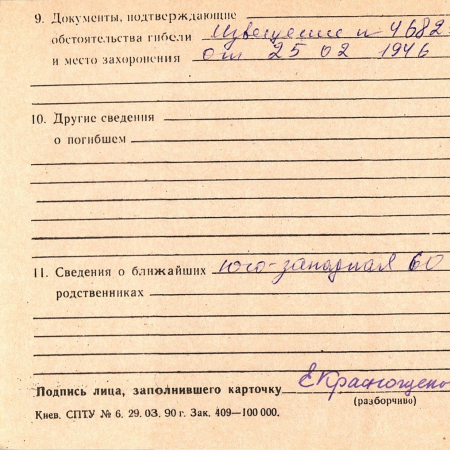 9. Документы, подтверждающие
обстоятельства гибели Извещение № 4682
и место захоронения от 25 02 1946
10. Другие сведения
о погибшем
11. Сведения о ближайших Юго-западная 60
родственниках
Подпись лица, заполнившего карточку ЕКраснощено
(разборчиво)
Киев. СПТУ № 6. 29. 03. 90 г. Зак. 409—100 000.